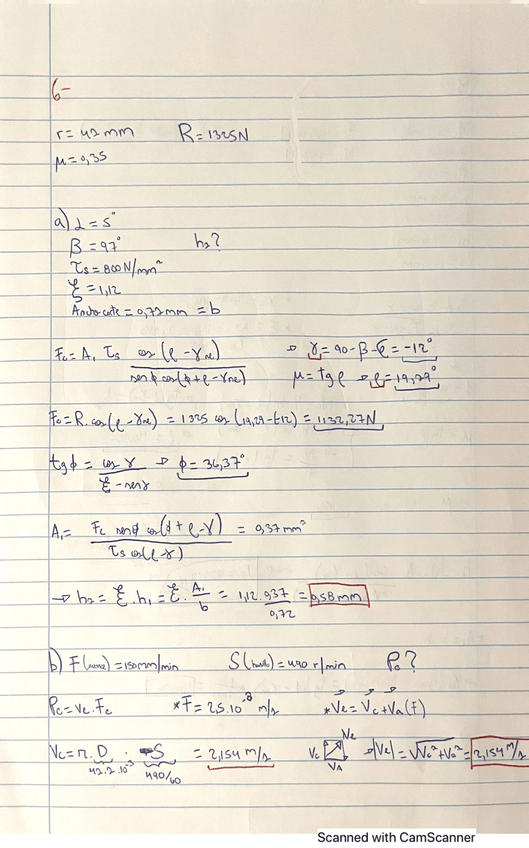 6-
r = 42 mm R = 1325N
μ = 0,35
a) α = 5°
β = 97° h₂?
τs = 800 N/mm²
ξ = 1,12
Ancho corte = 0,72 mm = b
Fc = A₁ τs cos(ρ - γne) / senϕ cos(ϕ + ρ - γne) → γ = 90 - β - α = -12°
μ = tg ρ → ρ = 19,29°
Fc = R. cos(ρ - γne) = 1325 cos(19,29 - (-12)) = 1132,27N
tg ϕ = cos γ / ξ - senγ → ϕ = 36,37°
A₁ = Fc senϕ cos(ϕ + ρ - γ) / τs cos(ρ - γ) = 0,37 mm²
→ h₂ = ξ. h₁ = ξ. A₁/b = 1,12. 0,37 / 0,72 = 0,58 mm
b) F = 150mm/min S = 490 r/min Pc?
Pc = Ve. Fc *F = 2,5.10⁻³ m/s *Ve = Vc + Va (F)
Vc = π. D . S = 2,154 m/s Vc Ve VA → |Ve| = √Vc² + Va² = 2,154 m/s
42.2.10⁻³ 490/60
Scanned with CamScanner